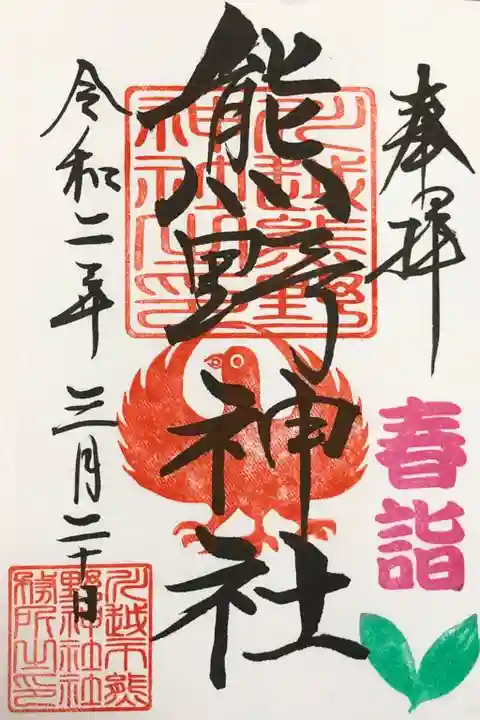 奉拝
春詣
熊野神社
川越熊野
神社之印
令和二年三月二十日
川越市熊
野神社社
務所之印